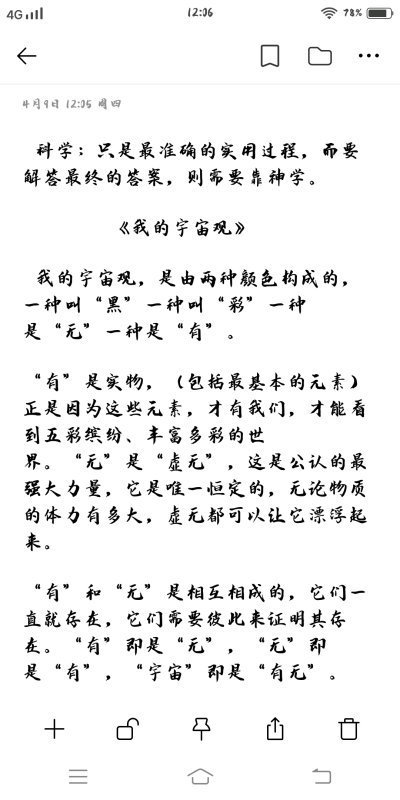 4G
12:06
78%
4月9日 12:05 周四
科学：只是最准确的实用过程，而要
解答最终的答案，则需要靠神学。
《我的宇宙观》
我的宇宙观，是由两种颜色构成的，
一种叫“黑”一种叫“彩”一种
是“无”一种是“有”。
“有”是实物，（包括最基本的元素）
正是因为这些元素，才有我们，才能看
到五彩缤纷、丰富多彩的世
界。“无”是“虚无”，这是公认的最
强大力量，它是唯一恒定的，无论物质
的体力有多大，虚无都可以让它漂浮起
来。
“有”和“无”是相互相成的，它们一
直就存在，它们需要彼此来证明其存
在。“有”即是“无”，“无”即
是“有”，“宇宙”即是“有无”。